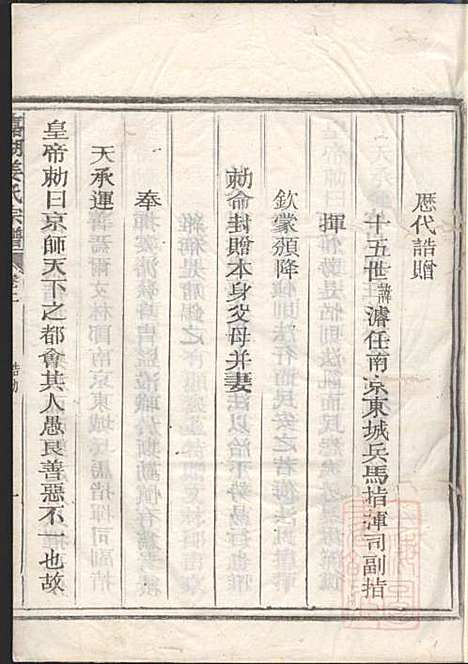 歷代誥贈
十五世諱濬任南京東城兵馬指揮司副指
揮
欽蒙頒降
勑命封贈本身父母并妻
奉
天承運
皇帝勑曰京師天下之都會其人愚良善惡不一也故
姜氏宗譜
誥勑